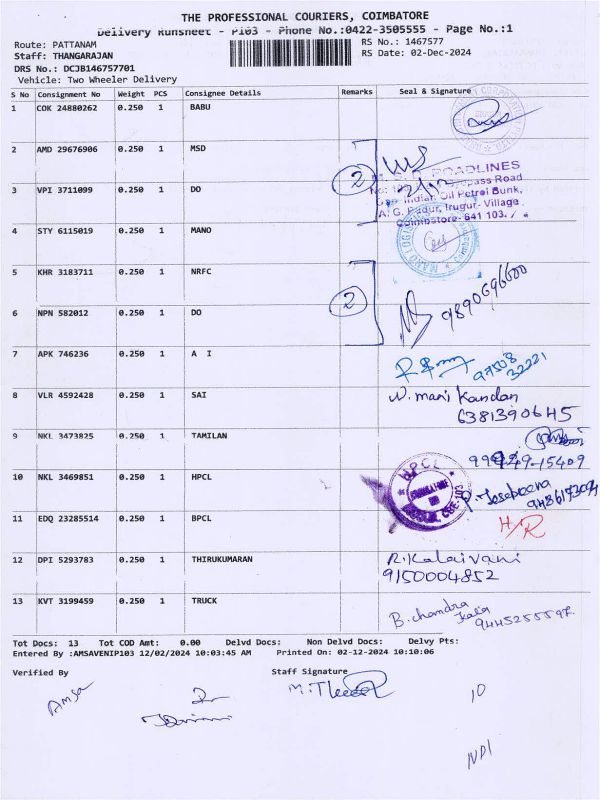 THE PROFESSIONAL COURIERS, COIMBATORE
Delivery Runsheet - P103 - Phone No.:0422-3505555 - Page No.:1
Route: PATTANAM RS No.: 1467577
Staff: THANGARAJAN RS Date: 02-Dec-2024
DRS No.: DCJB146757701
Vehicle: Two Wheeler Delivery
S No Consignment No Weight PCS Consignee Details Remarks Seal & Signature
1 COK 24880262 0.250 1 BABU
2 AMD 29676906 0.250 1 MSD
2
ROADLINES
pass Road
Indian Oil Petrol Bunk,
Irugur- Village
Coimbatore- 641 103.
3 VPI 3711099 0.250 1 DO
4 STY 6115019 0.250 1 MANO
5 KHR 3183711 0.250 1 NRFC
2
9890696600
6 NPN 582012 0.250 1 DO
7 APK 746236 0.250 1 A I
97508
32221
8 VLR 4592428 0.250 1 SAI W. mani Kandan
6381390645
9 NKL 3473825 0.250 1 TAMILAN
99949-15409
10 NKL 3469851 0.250 1 HPCL HPCL
11 EDQ 23285514 0.250 1 BPCL H/R
12 DPI 5293783 0.250 1 THIRUKUMARAN R. Kalaivani
9150004852
13 KVT 3199459 0.250 1 TRUCK B. chandra
kala
Tot Docs: 13 Tot COD Amt: 0.00 Delvd Docs: Non Delvd Docs: Delvy Pts:
Entered By :AMSAVENIP103 12/02/2024 10:03:45 AM Printed On: 02-12-2024 10:10:06
Verified By Staff Signature
Amsa
10
NDI